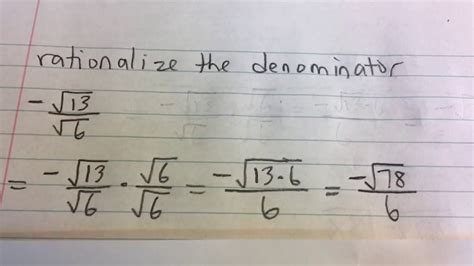 rationalize the denominator
-√13/√6
= -√13/√6 · √6/√6 = -√13·6/6 = -√78/6